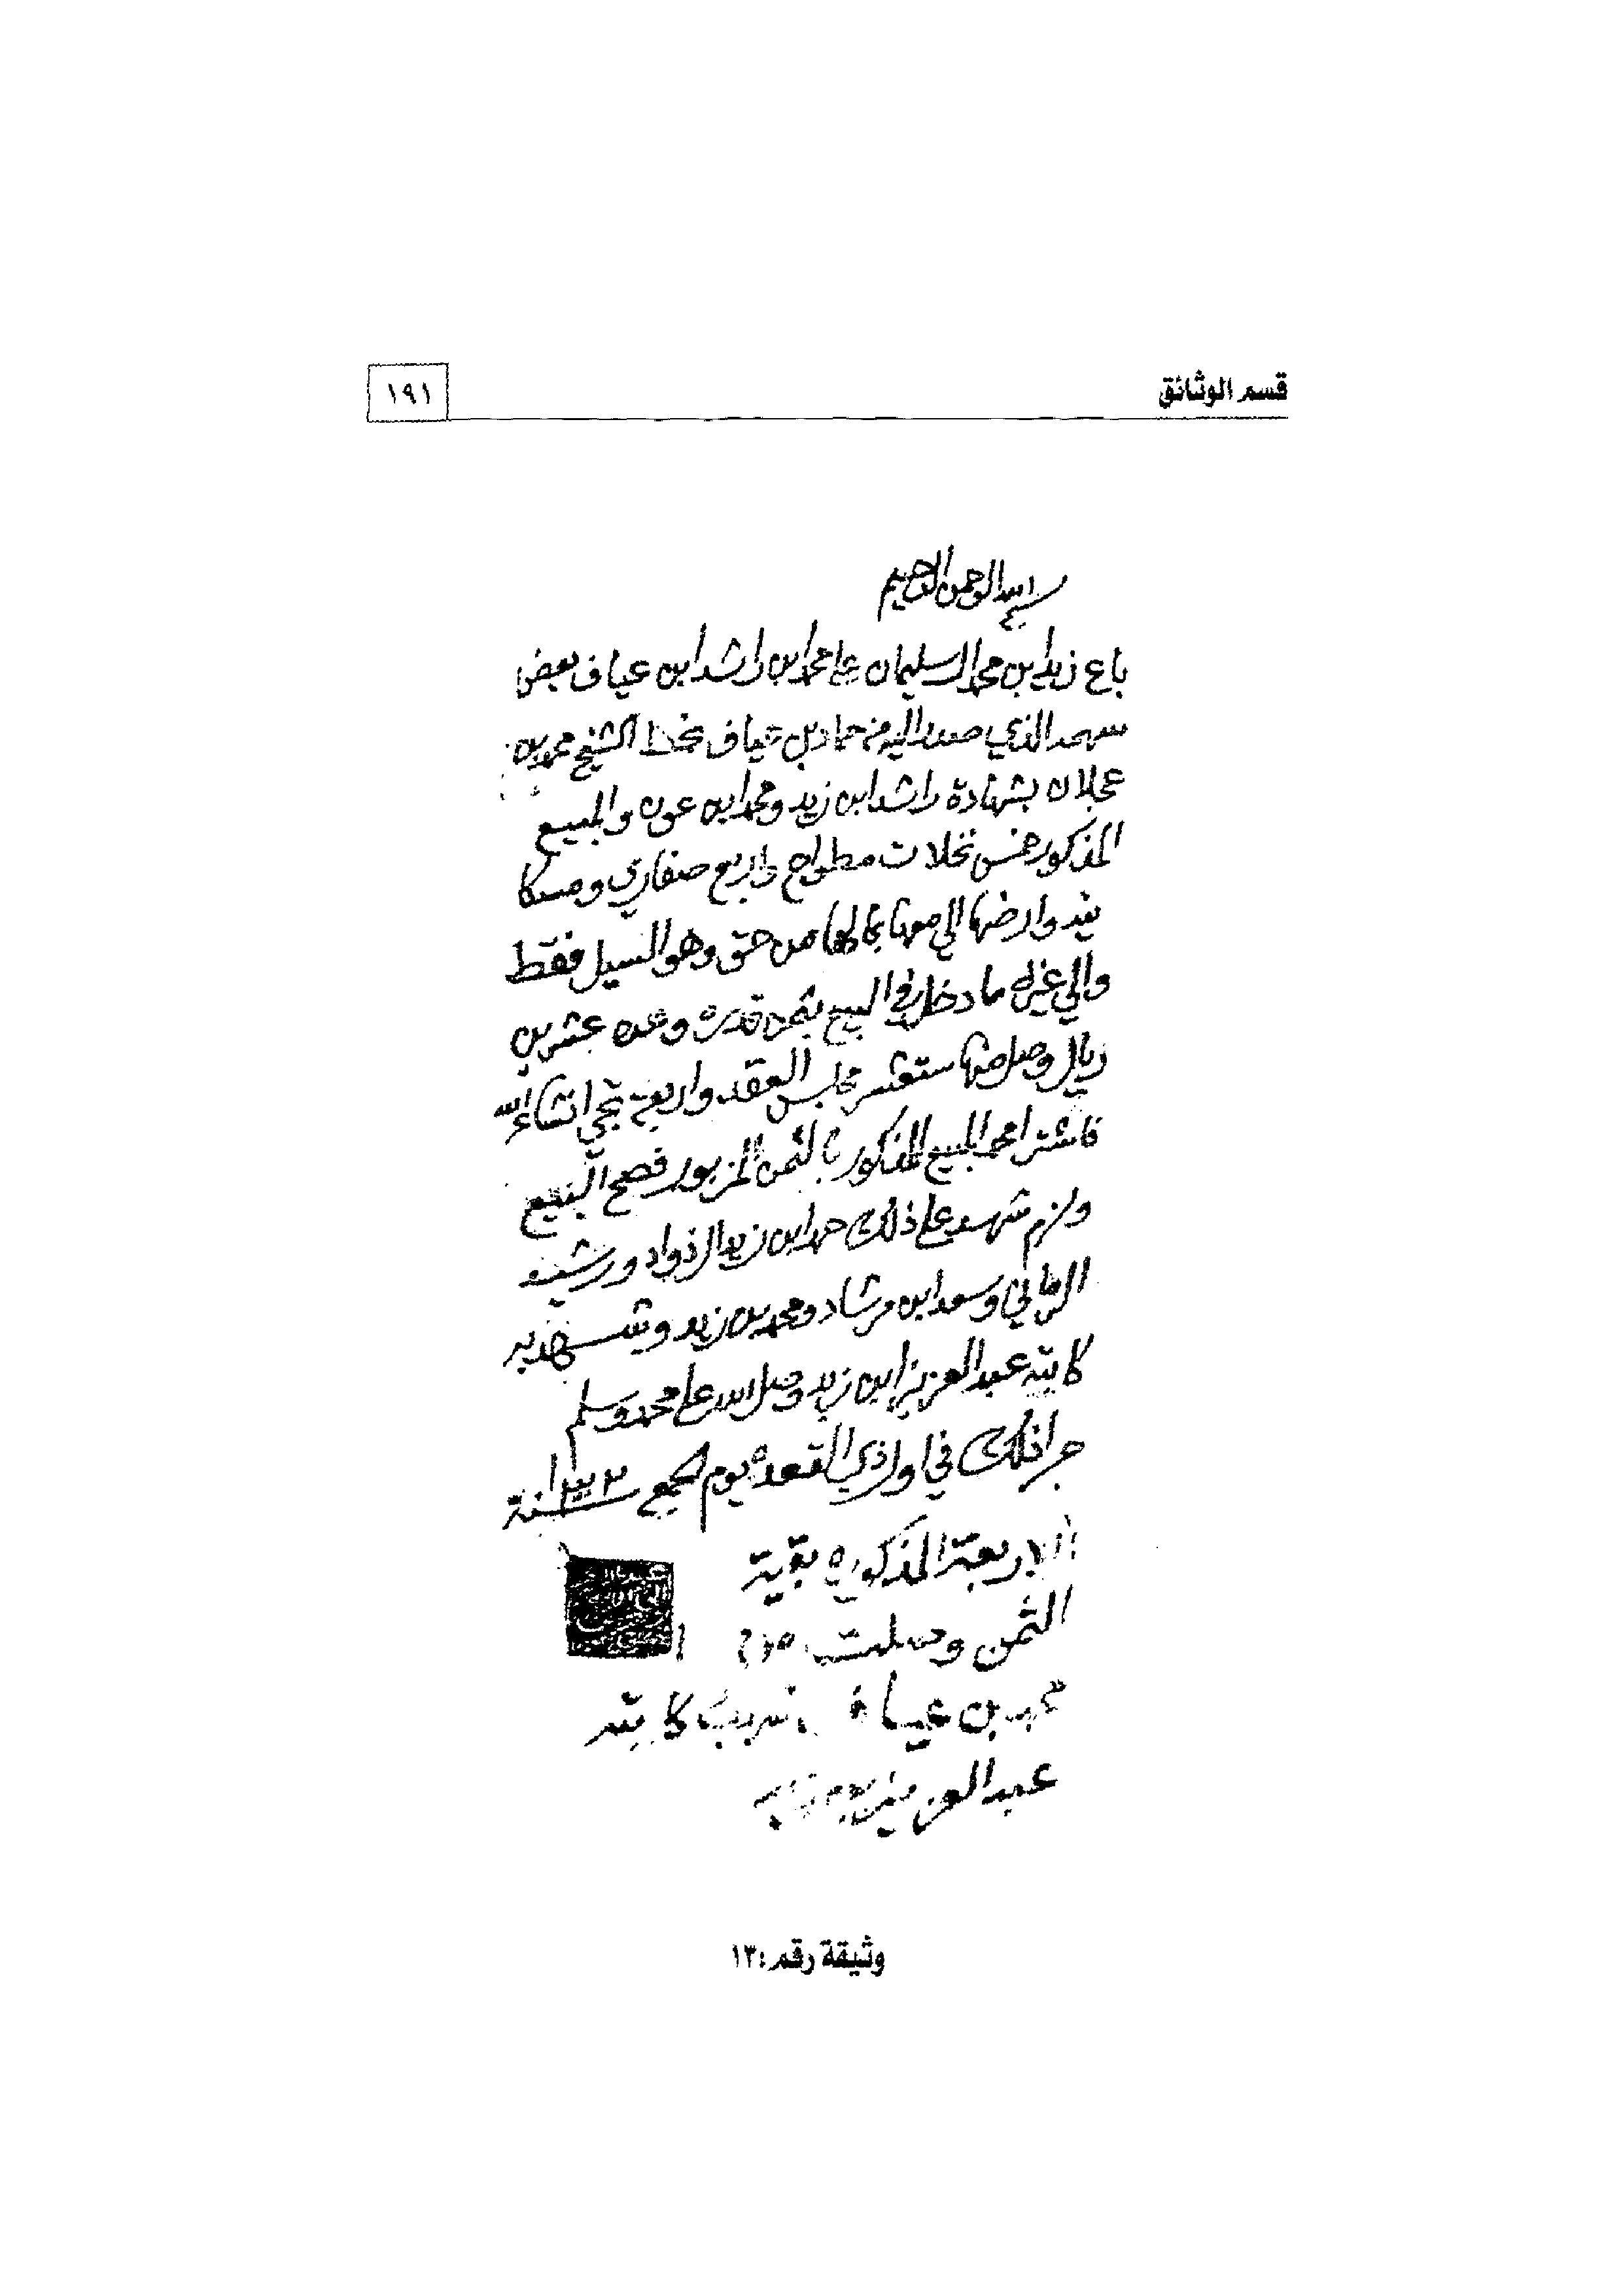 قسم الوثائق
١٩١
بسم الله الرحمن الرحيم
باع زيد ابن محمد السليمان على محمد ابن راشد ابن عياف بعض
سهمه الذي صدر اليه من حماد بن عياف بخط الشيخ محمد بن
عجلان بشهادة راشد ابن زيد ومحمد ابن عون والمبيع
المذكور خمس نخلات مطواح واربع صفاري ومسكا
نيه وارضها الي معها بمالها من حق وهو السيل فقط
والي غيره ما دخل في البيع بثمن قدره وعده عشرين
ريال وصل منها ستعشر مجلس العقد واربعة تجي انشاء الله
فاشترا محمد المبيع المذكور بالثمن المزبور فصح البيع
ولزم شهد على ذلك حمد ابن زيد الزواد ورشيد
الرماني وسعد ابن مرشاد ومحمد بن زيد وشهد به
كاتبه عبد العزيز ابن زيد وصل الله على محمد وسلم
جرا ذلك في اول ذي القعده يوم الجمع سنة ١٣٣٢
الاربعة المذكوره بقية
الثمن وصلت من
محمد بن عياف كاتبه
عبد العزيز بن زيد
وثيقة رقم: ١٣